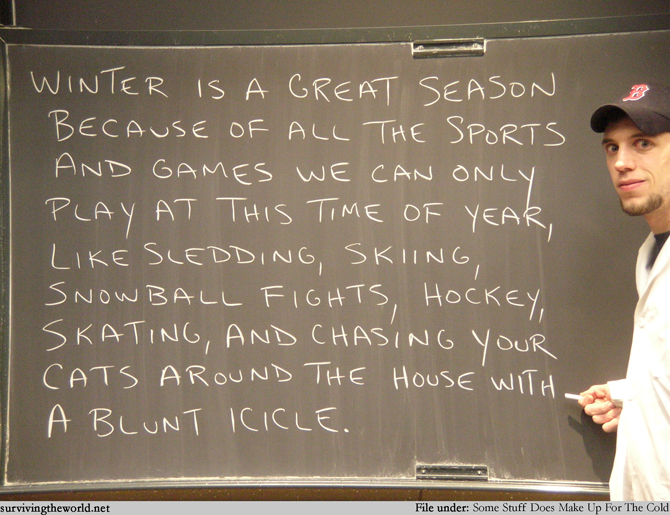 WINTER IS A GREAT SEASON
BECAUSE OF ALL THE SPORTS
AND GAMES WE CAN ONLY
PLAY AT THIS TIME OF YEAR,
LIKE SLEDDING, SKIING,
SNOWBALL FIGHTS, HOCKEY,
SKATING, AND CHASING YOUR
CATS AROUND THE HOUSE WITH
A BLUNT ICICLE.
B
survivingtheworld.net
File under: Some Stuff Does Make Up For The Cold